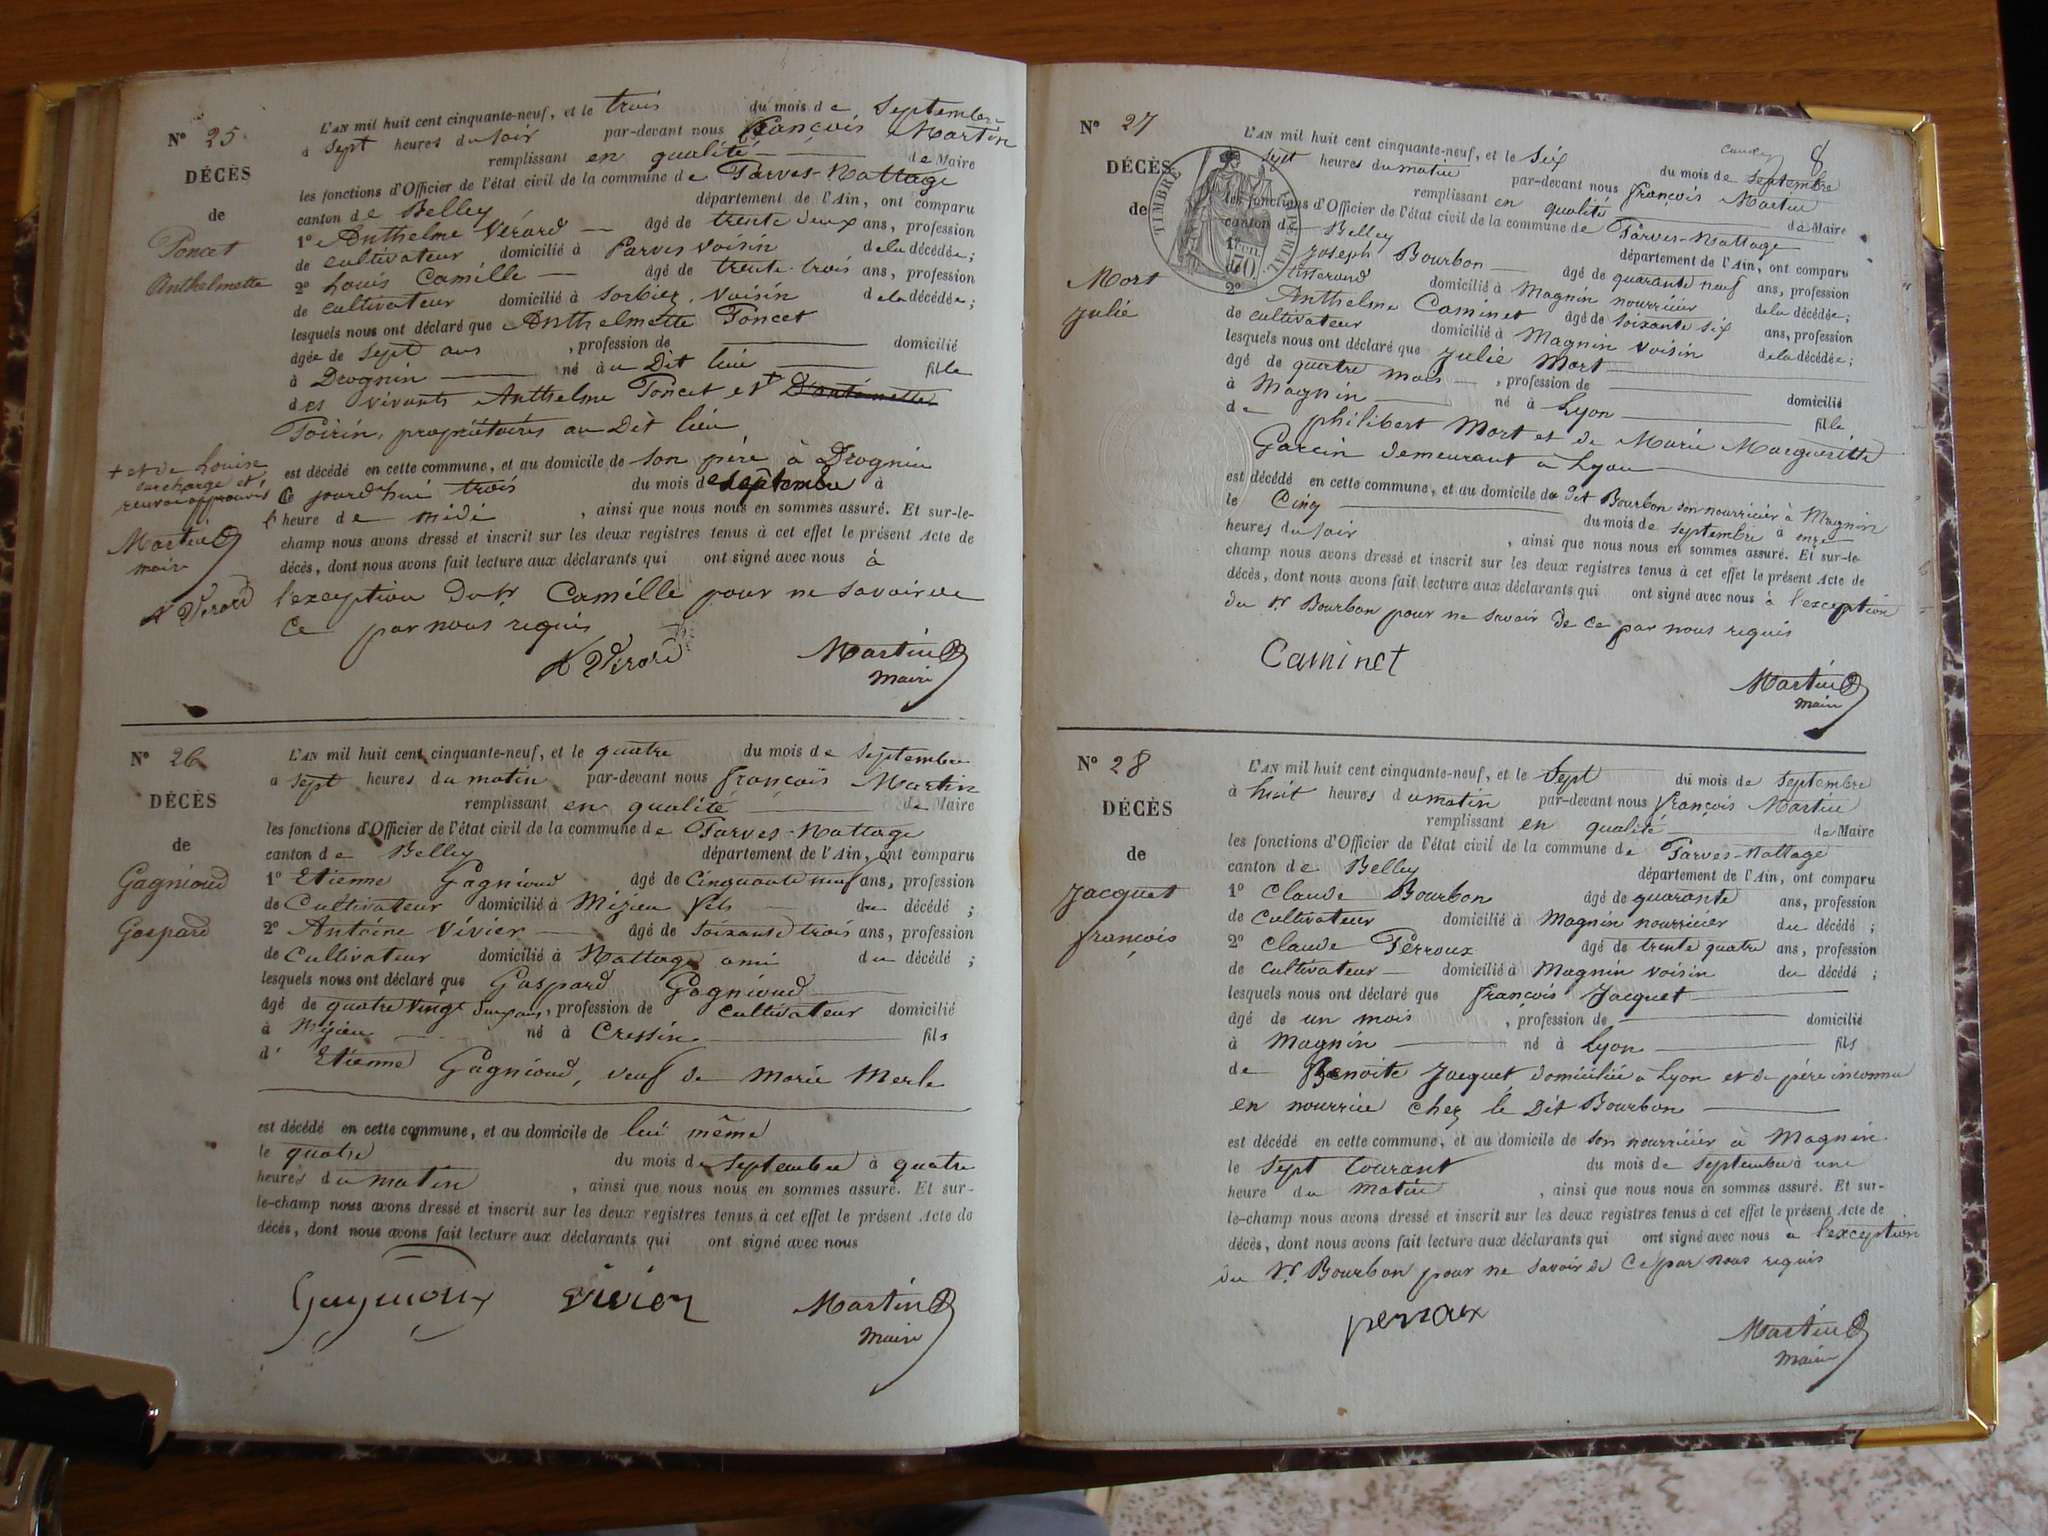 N° 25
DÉCÈS
de
Poncet
Anthelmette
L'AN mil huit cent cinquante-neuf, et le trois du mois de septembre
à sept heures du soir par-devant nous françois Martin
remplissant en qualité de Maire
les fonctions d'Officier de l'état civil de la commune de Parves-Nattage
canton de Belley département de l'Ain, ont comparu
1° Anthelme Vérard âgé de trente deux ans, profession
de cultivateur domicilié à Parves voisin de la décédée;
2° Louis Camille âgé de trente-trois ans, profession
de cultivateur domicilié à Sorbiez, voisin de la décédée;
lesquels nous ont déclaré que Anthelmette Poncet
âgée de sept ans, profession de domicilié
à Drognin né au Dit lieu fille
des vivants Anthelme Poncet et +
Poirin, propriétaires au Dit lieu
+ et de Louise
surcharge et
renvoi approuvés
Martin
maire
A Verard
est décédé en cette commune, et au domicile de son père à Drognin
Ce jourd'hui trois du mois de septembre à
heure de midi, ainsi que nous nous en sommes assuré. Et sur-le-
champ nous avons dressé et inscrit sur les deux registres tenus à cet effet le présent Acte de
décès, dont nous avons fait lecture aux déclarants qui ont signé avec nous à
l'exception du sr Camille pour ne savoir de
ce par nous requis
A Verard Martin
maire
N° 26
DÉCÈS
de
Gagnioud
Gaspard
L'AN mil huit cent cinquante-neuf, et le quatre du mois de septembre
à sept heures du matin par-devant nous françois Martin
remplissant en qualité de Maire
les fonctions d'Officier de l'état civil de la commune de Parves-Nattage
canton de Belley département de l'Ain, ont comparu
1° Etienne Gagnioud âgé de cinquante neuf ans, profession
de Cultivateur domicilié à Mizieu fils du décédé;
2° Antoine Vivier âgé de soixante trois ans, profession
de Cultivateur domicilié à Nattage ami du décédé;
lesquels nous ont déclaré que Gaspard Gagnioud
âgé de quatre vingt deux ans, profession de cultivateur domicilié
à Mizieu né à Cressin fils
d' Etienne Gagnioud, veuf de Marie Merle
est décédé en cette commune, et au domicile de lui même
le quatre du mois de septembre à quatre
heures du matin, ainsi que nous nous en sommes assuré. Et sur-
le-champ nous avons dressé et inscrit sur les deux registres tenus à cet effet le présent Acte de
décès, dont nous avons fait lecture aux déclarants qui ont signé avec nous
vivier Martin
maire
8
N° 27
DÉCÈS
de
Mort
Julie
TIMBRE IMPERIAL
L'AN mil huit cent cinquante-neuf, et le Six du mois de septembre
sept heures du matin par-devant nous françois Martin
remplissant en qualité de Maire
les fonctions d'Officier de l'état civil de la commune de Parves-Nattage
canton de Belley département de l'Ain, ont comparu
1° Joseph Bourbon âgé de quarante neuf ans, profession
de tisserand domicilié à Magnin nourricier de la décédée;
2° Anthelme Caminet âgé de soixante six ans, profession
de cultivateur domicilié à Magnin voisin de la décédée;
lesquels nous ont déclaré que Julie Mort
âgé de quatre mois, profession de domicilié
à Magnin né à Lyon fille
de philibert Mort et de Marie Marguerite
Garcin demeurant à Lyon
est décédé en cette commune, et au domicile du dit Bourbon son nourricier à Magnin
le Cinq du mois de septembre à onze
heures du soir, ainsi que nous nous en sommes assuré. Et sur-le-
champ nous avons dressé et inscrit sur les deux registres tenus à cet effet le présent Acte de
décès, dont nous avons fait lecture aux déclarants qui ont signé avec nous à l'exception
du sr Bourbon pour ne savoir de ce par nous requis
Caminet
Martin
maire
N° 28
DÉCÈS
de
Jacquet
françois
L'AN mil huit cent cinquante-neuf, et le Sept du mois de septembre
à huit heures du matin par-devant nous françois Martin
remplissant en qualité de Maire
les fonctions d'Officier de l'état civil de la commune de Parves-Nattage
canton de Belley département de l'Ain, ont comparu
1° Claude Bourbon âgé de quarante ans, profession
de cultivateur domicilié à Magnin nourricier du décédé;
2° Claude Perroux âgé de trente quatre ans, profession
de cultivateur domicilié à Magnin voisin du décédé;
lesquels nous ont déclaré que françois Jacquet
âgé de un mois, profession de domicilié
à Magnin né à Lyon fils
de Benoite Jacquet domiciliée à Lyon et de père inconnu
en nourrice chez le Dit Bourbon
est décédé en cette commune, et au domicile de son nourricier à Magnin
le sept courant du mois de septembre à une
heure du matin, ainsi que nous nous en sommes assuré. Et sur-
le-champ nous avons dressé et inscrit sur les deux registres tenus à cet effet le présent Acte de
décès, dont nous avons fait lecture aux déclarants qui ont signé avec nous à l'exception
du sr Bourbon pour ne savoir de ce par nous requis
perroux
Martin
maire